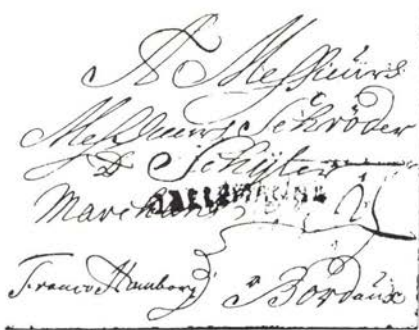 A Messieurs
Messieurs Schröder
& Schÿler
Marchands ALLEMAGNE
Franco Hamborg à Bordaúx